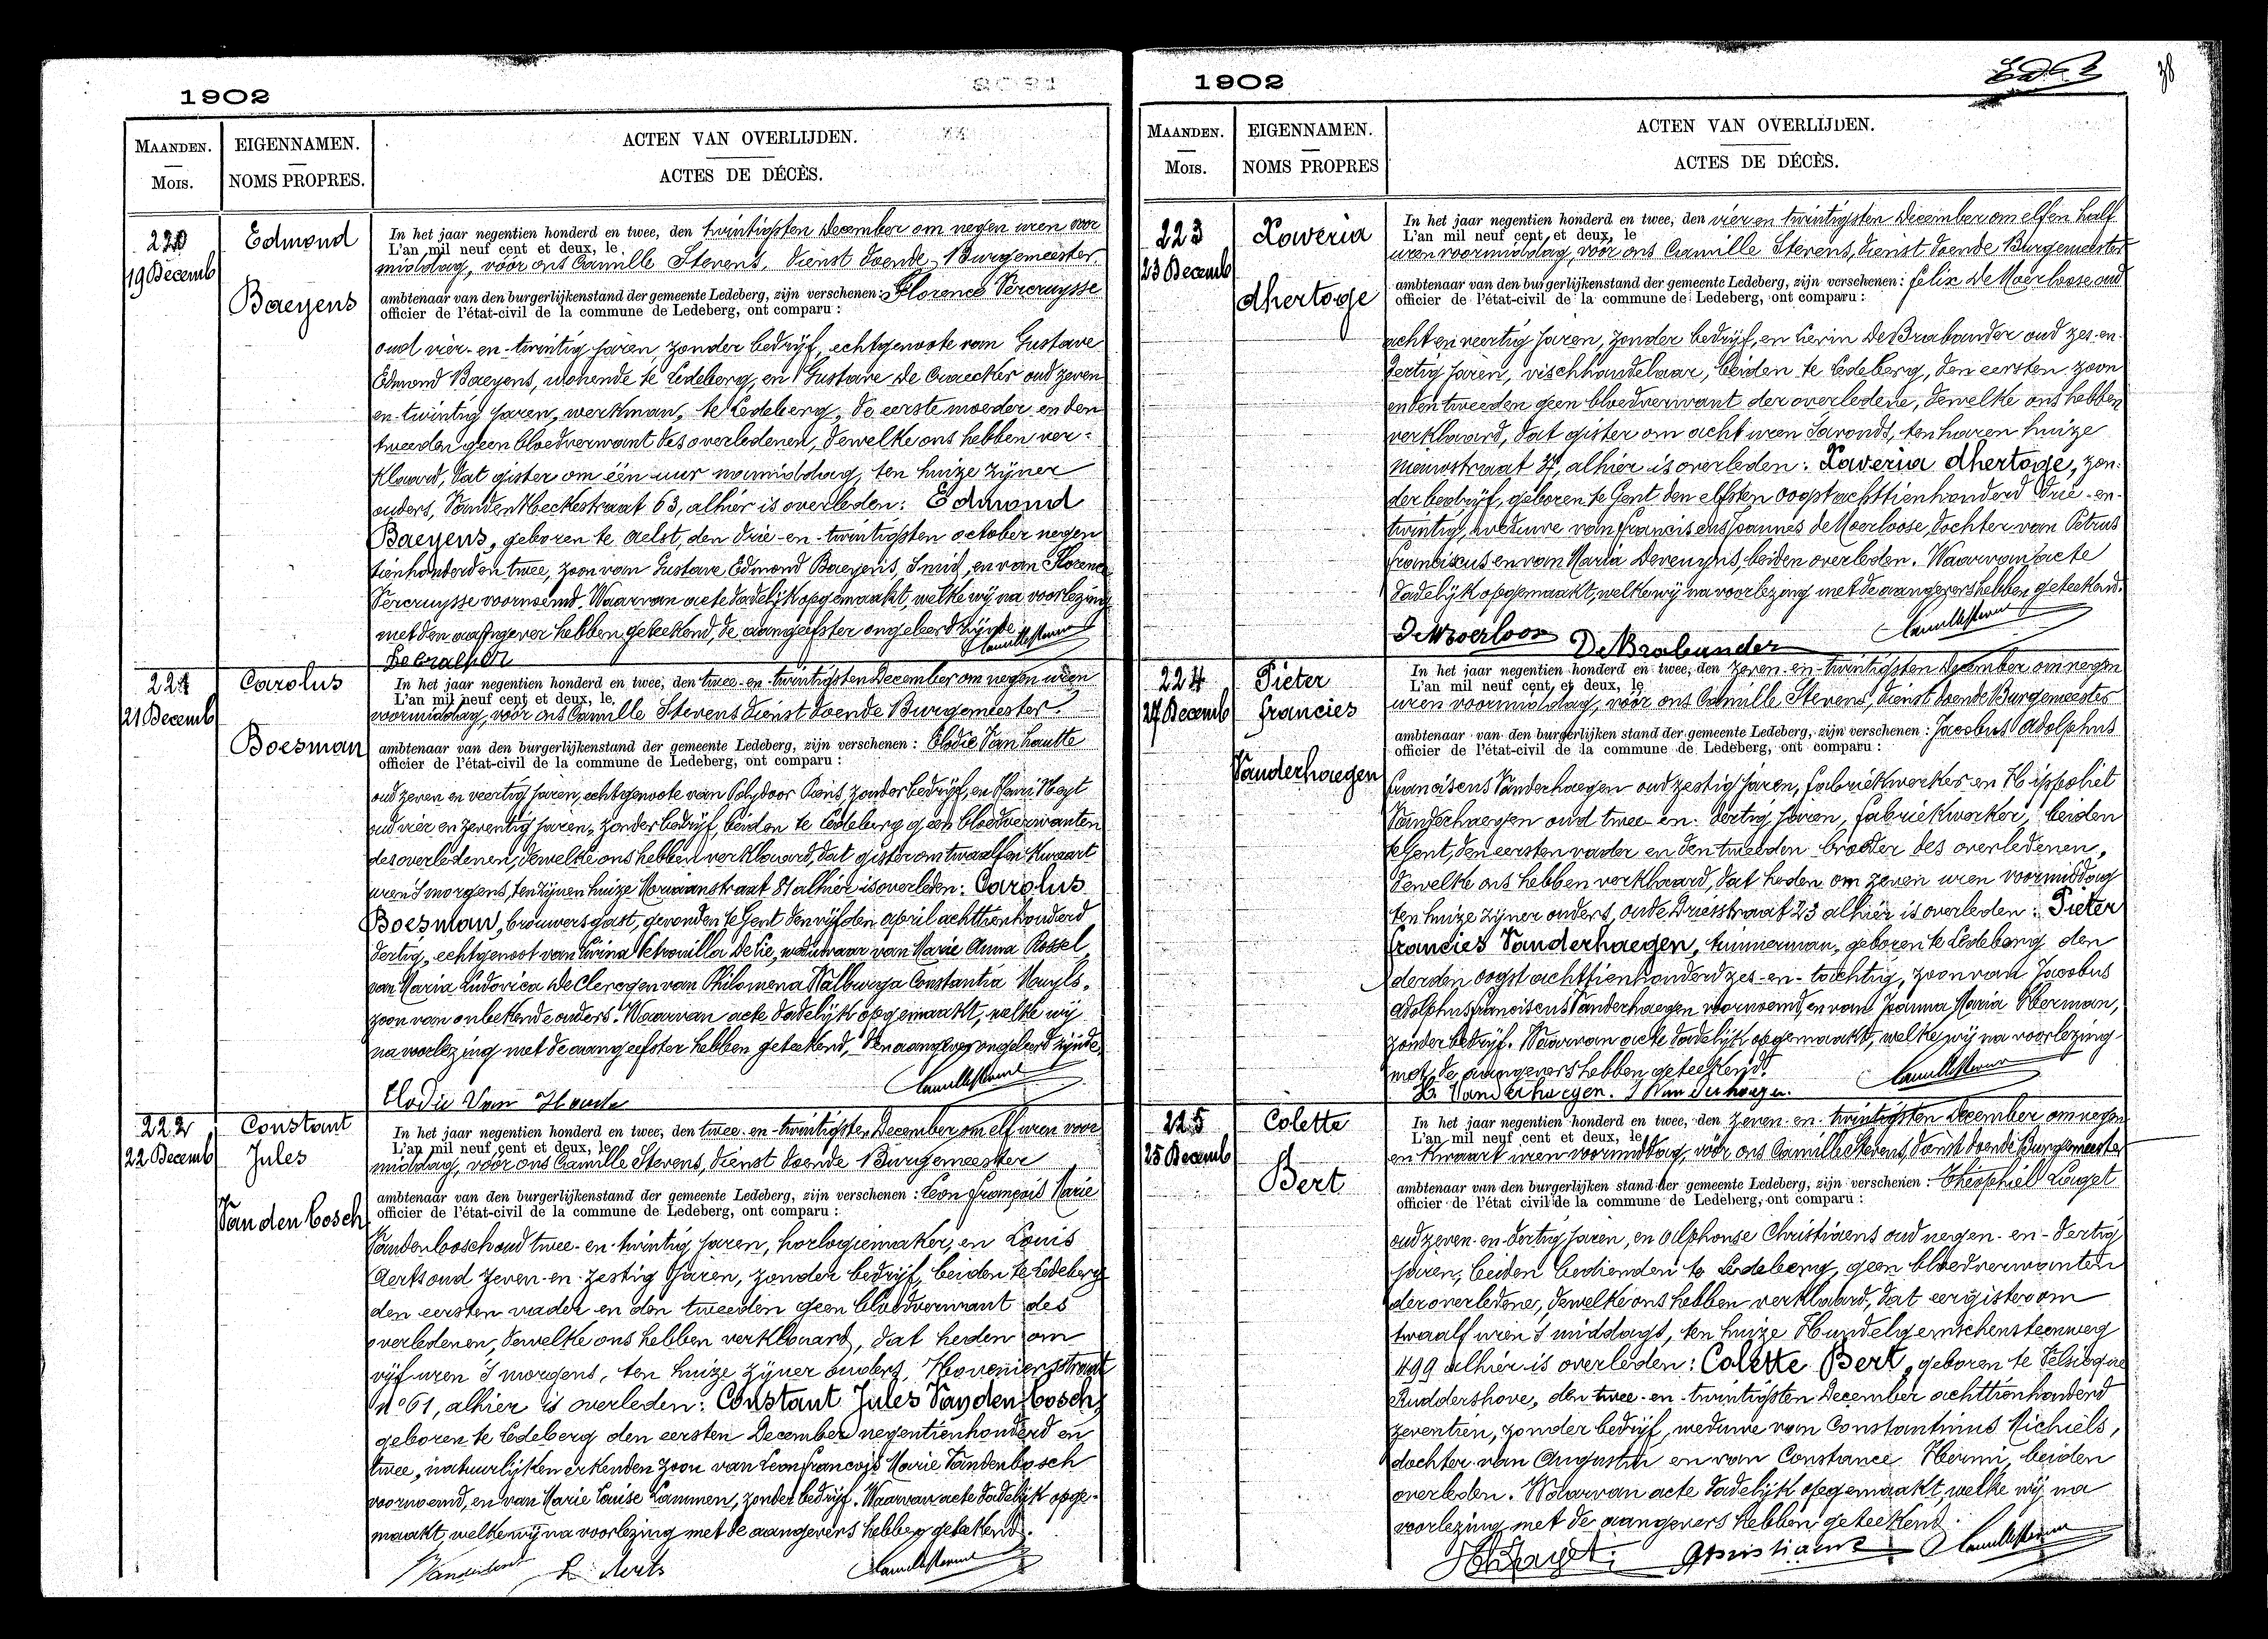 1902
MAANDEN.
MOIS.
EIGENNAMEN.
NOMS PROPRES.
ACTEN VAN OVERLIJDEN.
ACTES DE DÉCÈS.
220
19 Decemb
Edmond
Baeyens
In het jaar negentien honderd en twee, den twintigsten December om negen uren voor
L'an mil neuf cent et deux, le
middag, vóór ons Camille Stevens, dienst doende Burgemeester
ambtenaar van den burgerlijkenstand der gemeente Ledeberg, zijn verschenen: Florence Vercruysse
officier de l'état-civil de la commune de Ledeberg, ont comparu :
oud vier-en-twintig jaren, zonder bedrijf, echtgenoote van Gustave
Edmond Baeyens, wonende te Ledeberg, en Gustave De Craecker oud zeven
en-twintig jaren, werkman, te Ledeberg, de eerste moeder en den
tweeden geen bloedverwant des overledenen, dewelke ons hebben ver-
klaard, dat gister om één uur namiddag, ten huize zijner
ouders, Vanden Heckestraat 63, alhier is overleden: Edmond
Baeyens, geboren te Aelst, den drie-en-twintigsten october negen
tienhonderd en twee, zoon van Gustave Edmond Baeyens, Smid, en van Florence
Vercruysse voornoemd. Waarvan acte dadelijk opgemaakt, welke wij na voorlezing
met den aangever hebben geteekend, de aangeefster ongeleerd zijnde
221
21 Decemb
Carolus
Boesman
In het jaar negentien honderd en twee, den twee-en-twintigsten December om negen uren
L'an mil neuf cent et deux, le
voormiddag, vóór ons Camille Stevens dienst doende Burgemeester
ambtenaar van den burgerlijkenstand der gemeente Ledeberg, zijn verschenen : Elodie Van Hautte
officier de l'état-civil de la commune de Ledeberg, ont comparu :
oud zeven en veertig jaren, echtgenoote van Polydoor Piens, zonder bedrijf, en Henri Heyt
oud vier en zeventig jaren, zonder bedrijf, beiden te Ledeberg geen bloedverwanten
des overledenen, dewelke ons hebben verklaard, dat gister om twaalf en kwaart
uren 's morgens, ten zijnen huize 81 alhier is overleden: Carolus
Boesman, brouwersgast, gevonden te Gent den vijfden april achttienhonderd
dertig, echtgenoot van Petronilla De Lie, weduwaar van Marie Anna Rossel,
van Maria Ludovica De Clercq en van Philomena Walburga Constantia Muyls,
zoon van onbekende ouders. Waarvan acte dadelijk opgemaakt, welke wij
na voorlezing met de aangeefster hebben geteekend, den aangever ongeleerd zijnde,
Elodie Van Houtte
222
22 Decemb
Constant
Jules
Vandenbosch
In het jaar negentien honderd en twee, den twee-en-twintigsten December om elf uren voor
L'an mil neuf cent et deux, le
middag, vóór ons Camille Stevens, dienst doende Burgemeester
ambtenaar van den burgerlijkenstand der gemeente Ledeberg, zijn verschenen : Leon François Marie
officier de l'état-civil de la commune de Ledeberg, ont comparu :
Vandenbosch oud twee-en-twintig jaren, horlogiemaker, en Louis
Aerts oud zeven-en-zestig jaren, zonder bedrijf, beiden te Ledeberg
den eersten vader en den tweeden geen bloedverwant des
overledenen, dewelke ons hebben verklaard, dat heden om
vijf uren 's morgens, ten huize zijner ouders, Hoveniersstraat
n° 61, alhier is overleden: Constant Jules Vandenbosch,
geboren te Ledeberg den eersten December negentienhonderd en
twee, natuurlijken erkenden zoon van Leon François Marie Vandenbosch
voornoemd, en van Marie Louise Lammen, zonder bedrijf. Waarvan acte dadelijk opge-
maakt, welke wij na voorlezing met de aangevers hebben geteekend.
L. Aerts
1902
38
MAANDEN.
MOIS.
EIGENNAMEN.
NOMS PROPRES
ACTEN VAN OVERLIJDEN.
ACTES DE DÉCÈS.
223
23 Decemb
Xaveria
dhertoge
In het jaar negentien honderd en twee, den vier en twintigsten December om elf en half
L'an mil neuf cent et deux, le
uren voormiddag, vóór ons Camille Stevens, dienst doende Burgemeester
ambtenaar van den burgerlijkenstand der gemeente Ledeberg, zijn verschenen : Felix De Moerloose oud
officier de l'état-civil de la commune de Ledeberg, ont comparu :
acht en veertig jaren, zonder bedrijf, en Levin De Brabander oud zes-en-
dertig jaren, vischhandelaar, beiden te Ledeberg, den eersten zoon
en den tweeden geen bloedverwant der overledene, dewelke ons hebben
verklaard, dat gister om acht uren 's avonds, ten haren huize
Nieuwstraat 37, alhier is overleden: Xaveria dhertoge, zon-
der bedrijf, geboren te Gent den elfsten oogst achttienhonderd drie-en-
twintig, weduwe van Franciscus Joannes de Moerloose, dochter van Petrus
Franciscus en van Maria Deveughis, beiden overleden. Waarvan acte
dadelijk opgemaakt, welke wij na voorlezing met de aangevers hebben geteekend.
De Moerloose De Brabander
224
27 Decemb
Pieter
francies
Vanderhaegen
In het jaar negentien honderd en twee, den zeven-en-twintigsten December om negen
L'an mil neuf cent et deux, le
uren voormiddag, vóór ons Camille Stevens, dienst doende Burgemeester
ambtenaar van den burgerlijken stand der gemeente Ledeberg, zijn verschenen : Jacobus Adolphus
officier de l'état-civil de la commune de Ledeberg, ont comparu :
Franciscus Vanderhaegen oud zestig jaren, fabriekwerker en Hippoliet
Vanderhaegen oud twee-en-dertig jaren, fabriekwerker, beiden
te Gent, den eersten vader en den tweeden broeder des overledenen,
dewelke ons hebben verklaard, dat heden om zeven uren voormiddag
ten huize zijner ouders, oude Driesstraat 23 alhier is overleden : Pieter
francies Vanderhaegen, timmerman, geboren te Ledeberg den
derden oogst achttienhonderd zes-en-tachtig, zoon van Jacobus
Adolphus Franciscus Vanderhaegen voornoemd, en van Joanna Maria Herman,
zonder bedrijf. Waarvan acte dadelijk opgemaakt, welke wij na voorlezing
met de aangevers hebben geteekend.
H. Vanderhaegen. J Vanderhaegen.
225
25 Decemb
Colette
Bert
In het jaar negentien honderd en twee, den zeven-en-twintigsten December om negen
L'an mil neuf cent et deux, le
en kwaart uren voormiddag, vóór ons Camille Stevens, dienst doende Burgemeester
ambtenaar van den burgerlijken stand der gemeente Ledeberg, zijn verschenen : Theophiel Laget
officier de l'état civil de la commune de Ledeberg, ont comparu :
oud zeven-en-dertig jaren, en Alphonse Christiaens oud negen-en-dertig
jaren, beiden bedienden te Ledeberg, geen bloedverwanten
der overledene, dewelke ons hebben verklaard, dat eergister om
twaalf uren 's middags, ten huize Hundelgemschensteenweg
499 alhier is overleden: Colette Bert, geboren te Velsicque
Ruddershove, den twee-en-twintigsten December achttienhonderd
zeventien, zonder bedrijf, weduwe van Constantinus Michiels,
dochter van Augustin en van Constance Hermi, beiden
overleden. Waarvan acte dadelijk opgemaakt, welke wij na
voorlezing met de aangevers hebben geteekend.
Christiaens